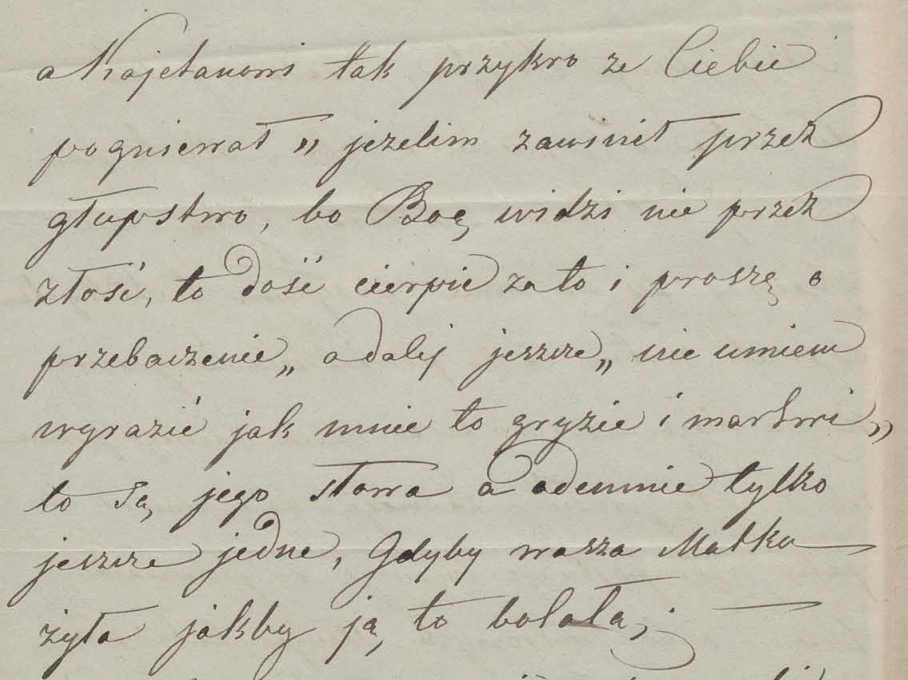 a Kajetanowi tak przykro ze Ciebie
pogniewał „ jezelim zawinił przez
głupstwo, bo Bog widzi nie przez
złość, to dość cierpie za to i proszę o
przebaczenie „ a dalej jeszcze „ nie umiem
wyrazić jak mnie to gryzie i martwi „
to są jego słowa a odemnie tylko
jeszcze jedne, Gdyby wasza Matka
żyła jakby ją to bolała; —